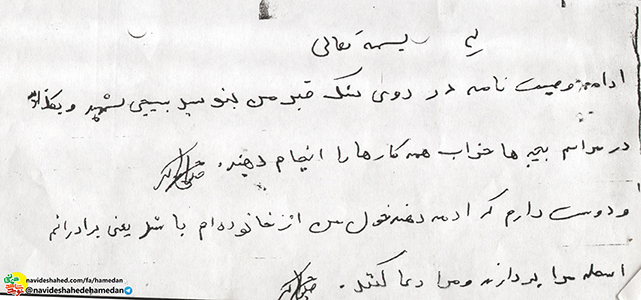 بسمه تعالی
ادامه وصیت نامه در روی سنگ قبر من بنویسید بسیجی شهید و بگذارید
در مراسم بچه ها خواب همه کارها را انجام دهند.
و دوست دارم که ادامه دهنده خون من از خانواده ام باشد یعنی برادرانم
اسلحه مرا بردارند و مرا دعا کنند.
navideshahed.com/fa/hamedan
@navideshahedehamedan